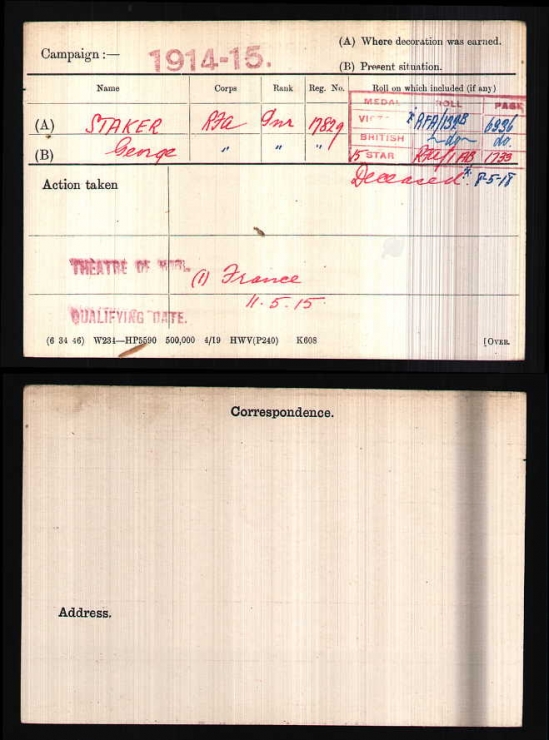 (A) Where decoration was earned.
Campaign :— 1914-15.
(B) Present situation.
Name Corps Rank Reg. No. Roll on which included (if any)
MEDAL ROLL PAGE
(A) STAKER RFA Gnr 17829 VICT RFA/132B 6936
(B) George " " " BRITISH do do.
15 STAR RFA/1AB 1733
Action taken Deceased. 8-5-18
THEATRE OF WAR. (1) France
QUALIFYING DATE. 11.5.15.
(6 34 46) W234—HP5590 500,000 4/19 HWV(P240) K608 [OVER.
Correspondence.
Address.